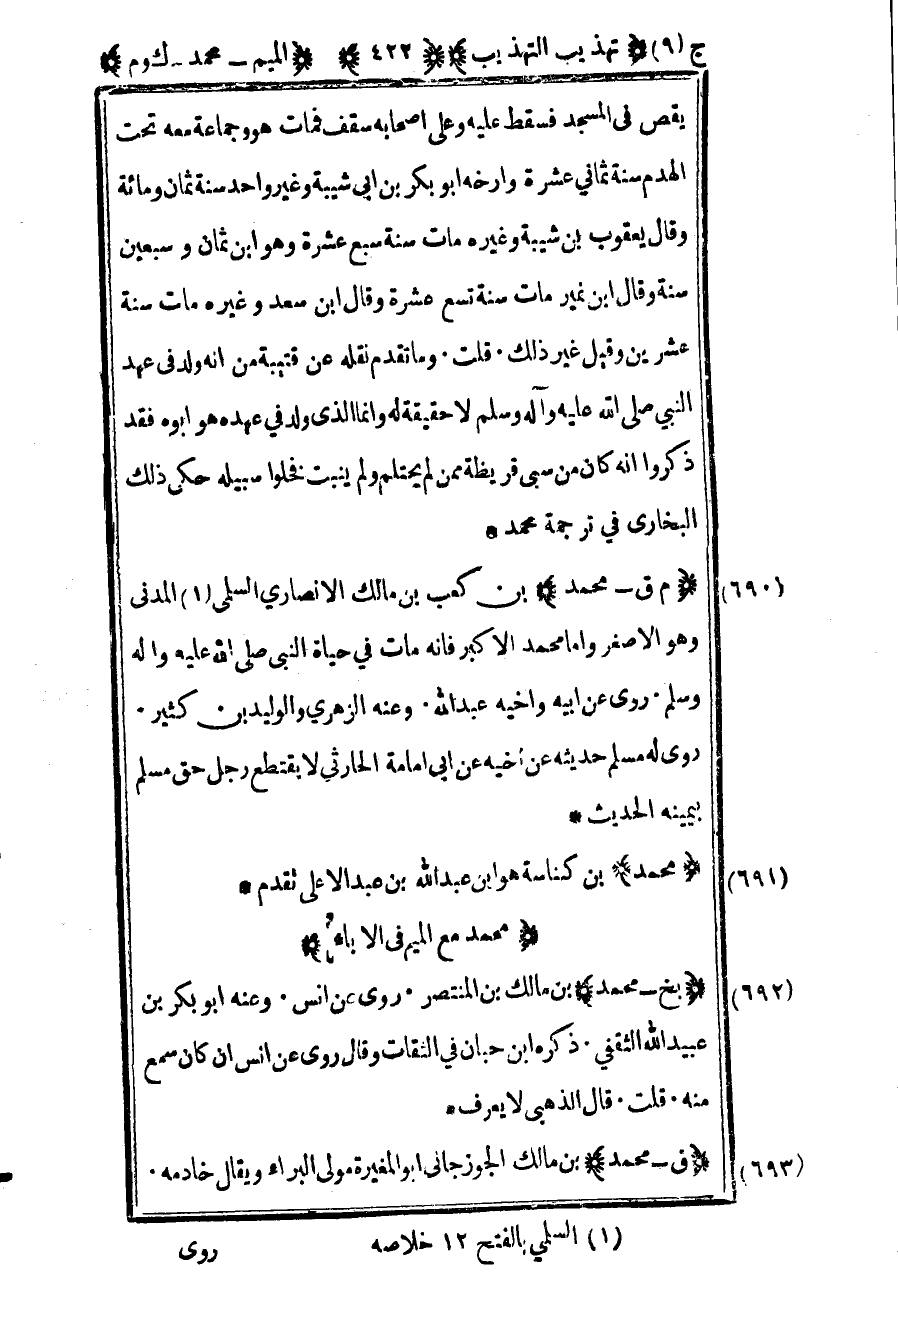 ج (٩) ﴿ تهذيب التهذيب ﴾ ﴿ ٤٢٢ ﴾ ﴿ الميم ـ محمد ـ ك وم ﴾
يقص فى المسجد فسقط عليه وعلى اصحابه سقف فمات هو وجماعة معه تحت
الهدم سنة ثماني عشرة وارخه ابو بكر بن ابى شيبة وغير واحد سنة ثمان ومائة
وقال يعقوب بن شيبة وغيره مات سنة سبع عشرة وهو ابن ثمان و سبعين
سنة وقال ابن نمير مات سنة تسع عشرة وقال ابن سعد وغيره مات سنة
عشرين وقيل غير ذلك · قلت · وما تقدم نقله عن قتيبة من انه ولد فى عهد
النبي صلى الله عليه وآله وسلم لا حقيقة له وانما الذى ولد في عهده هو ابوه فقد
ذكروا انه كان من سبى قريظة ممن لم يحتلم ولم ينبت فخلوا سبيله حكى ذلك
البخارى في ترجمة محمد *
(٦٩٠) ﴿ م ق ـ محمد ﴾ بن كعب بن مالك الانصاري السلمى (١) المدنى
وهو الاصغر واما محمد الاكبر فانه مات في حياة النبى صلى الله عليه واله
وسلم · روى عن ابيه واخيه عبدالله · وعنه الزهري والوليد بن كثير ·
روى له مسلم حديثه عن أخيه عن ابى امامة الحارثي لا يقتطع رجل حق مسلم
بيمينه الحديث *
(٦٩١) ﴿ محمد ﴾ بن كناسة هو ابن عبدالله بن عبد الاعلى تقدم *
﴿ محمد مع الميم فى الاباء ﴾
(٦٩٢) ﴿ بخ ـ محمد ﴾ بن مالك بن المنتصر · روى عن انس · وعنه ابو بكر بن
عبيد الله الثقفي · ذكره ابن حبان في الثقات وقال روى عن انس ان كان سمع
منه · قلت · قال الذهبى لا يعرف *
(٦٩٣) ﴿ ق ـ محمد ﴾ بن مالك الجوزجانى ابو المغيرة مولى البراء ويقال خادمه ·
(١) السلمي بالفتح ١٢ خلاصه
روى